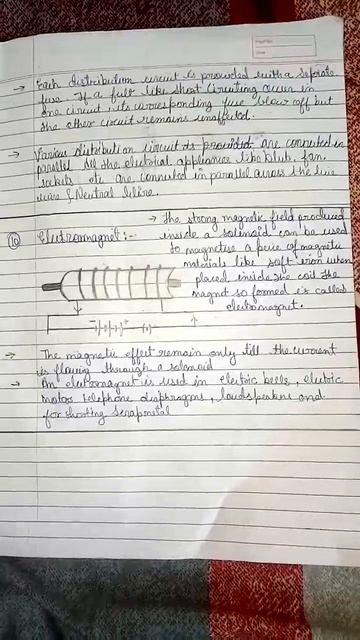 → Each distribution circuit is provided with a seperate
fuse. If a fult like short circuiting occur in
one circuit its corresponding fuse blow off but
the other circuit remains unaffected.
→ Various distribution circuit is provided are connected in
parallel All the electorial appliances like blub, fan,
sockets etc are connected in parallel across the live
wire & Neutral Wire.
→ The strong magnetic field produced
(10) Electromagnet:-
inside a solenoid can be used
to magnetise a peice of magnetic
materials like soft iron when
placed inside the coil the
magnet so formed is called
electromagnet.
→ The magnetic effect remain only till the current
is flowing through a solenoid
→ An eletromagnet is used in electric bells, electric
motor telephone diaphragms, loudspeakers and
for shooting